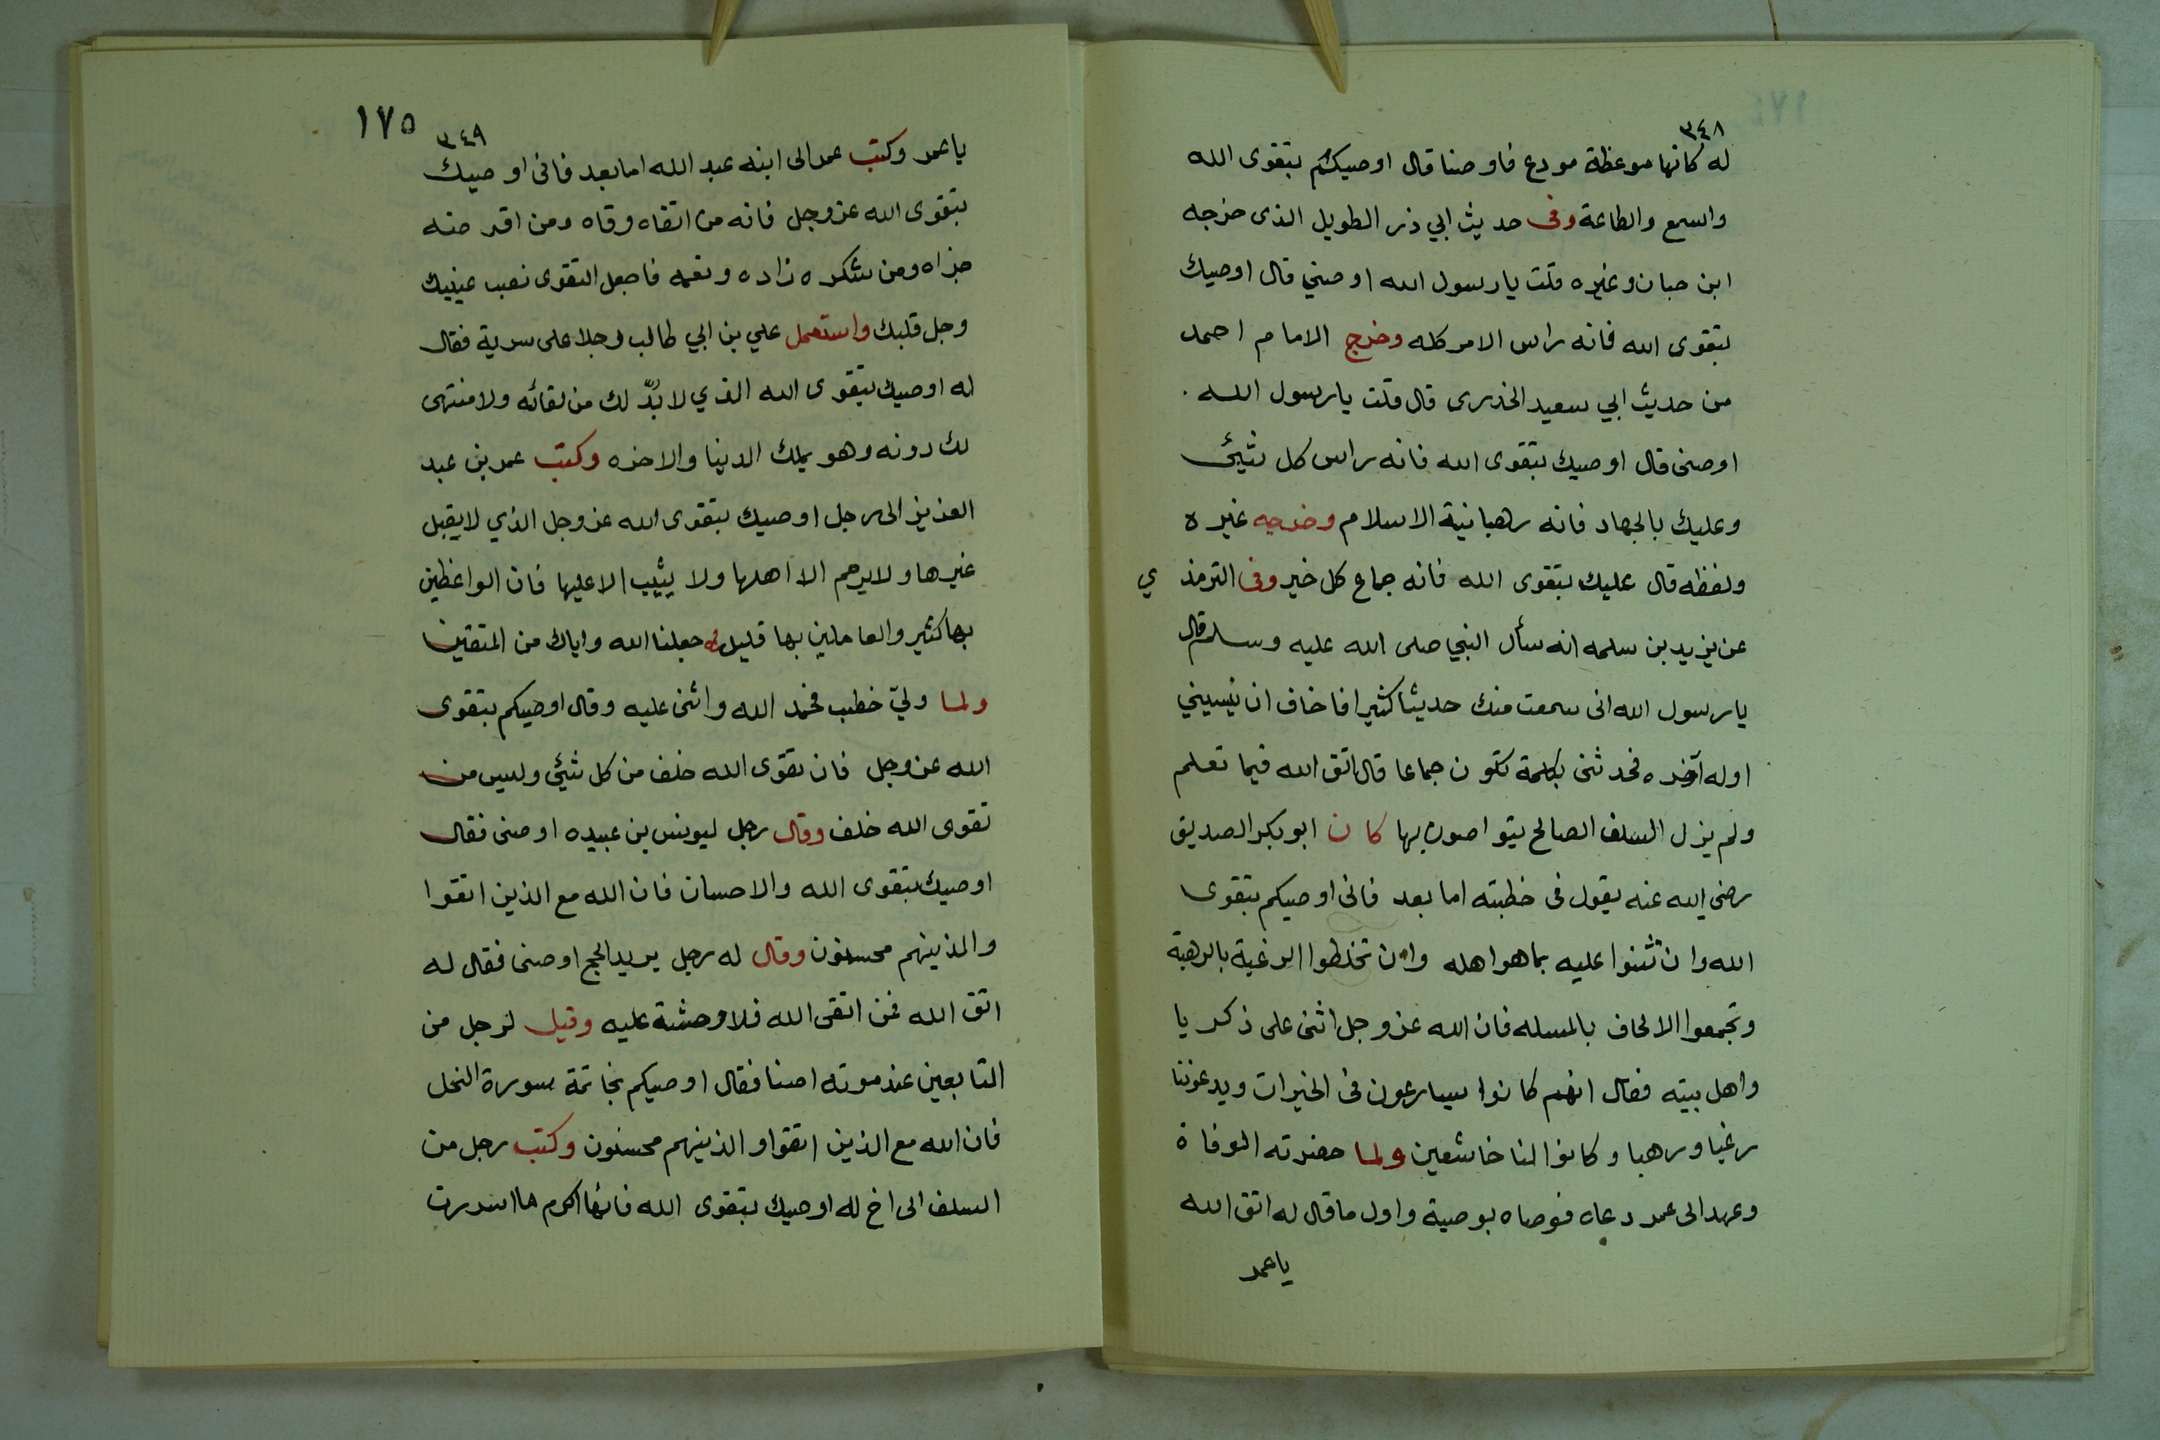 ٣٤٨
له كانها موعظة مودع فاوصنا قال اوصيكم بتقوى الله
والسمع والطاعة وفى حديث ابي ذر الطويل الذى خرجه
ابن حبان وغيره قلت يا رسول الله اوصني قال اوصيك
بتقوى الله فانه راس الامر كله وخرج الامام احمد
من حديث ابي سعيد الخدرى قال قلت يا رسول الله
اوصنى قال اوصيك بتقوى الله فانه راس كل شيئ
وعليك بالجهاد فانه رهبانية الاسلام وخرجه غيره
ولفظه قال عليك بتقوى الله فانه جماع كل خير وفى الترمذي
عن يزيد بن سلمه انه سأل النبي صلى الله عليه وسلم قال
يا رسول الله انى سمعت منك حديثا كثيرا فاخاف ان ينسيني
اوله آخره فحدثنى بكلمة تكون جماعا قال اتق الله فيما تعلم
ولم يزل السلف الصالح يتواصون بها كان ابو بكر الصديق
رضى الله عنه يقول فى خطبته اما بعد فانى اوصيكم بتقوى
الله وان تثنوا عليه بما هو اهله وان تخلطوا الرغبة بالرهبة
وتجمعوا الالحاف بالمسله فان الله عز وجل اثنى على زكريا
واهل بيته فقال انهم كانوا يسارعون فى الخيرات ويدعوننا
رغبا ورهبا وكانوا لنا خاشعين ولما حضرته الوفاة
وعهد الى عمر دعاه فوصاه بوصية واول ما قال له اتق الله
يا عمر
١٧٥
٣٤٩
يا عمر وكتب عمر الى ابنه عبد الله اما بعد فانى اوصيك
بتقوى الله عز وجل فانه من اتقاه وقاه ومن اقرضه
جزاه ومن شكره زاده ونعمه فاجعل التقوى نصب عينيك
وجل قلبك واستعمل علي بن ابي طالب رجلا على سرية فقال
له اوصيك بتقوى الله الذي لا بدّ لك من لقائه ولا منتهى
لك دونه وهو يملك الدنيا والاخره وكتب عمر بن عبد
العزيز الى رجل اوصيك بتقوى الله عز وجل الذي لا يقبل
غيرها ولا يرحم الا اهلها ولا يثيب الا عليها فان الواعظين
بها كثير والعاملين بها قليل جعلنا الله واياك من المتقين
ولما وليّ خطب فحمد الله واثنى عليه وقال اوصيكم بتقوى
الله عز وجل فان تقوى الله خلف من كل شيئ وليس من
تقوى الله خلف وقال رجل ليونس بن عبيده اوصنى فقال
اوصيك بتقوى الله والاحسان فان الله مع الذين اتقوا
والذينهم محسنون وقال له رجل يريد الحج اوصنى فقال له
اتق الله فمن اتقى الله فلا وحشة عليه وقيل لرجل من
التابعين عند موته اصنا فقال اوصيكم بخاتمة سورة النحل
فان الله مع الذين اتقوا والذينهم محسنون وكتب رجل من
السلف الى اخ له اوصيك بتقوى الله فانها اكرم ما اسررت